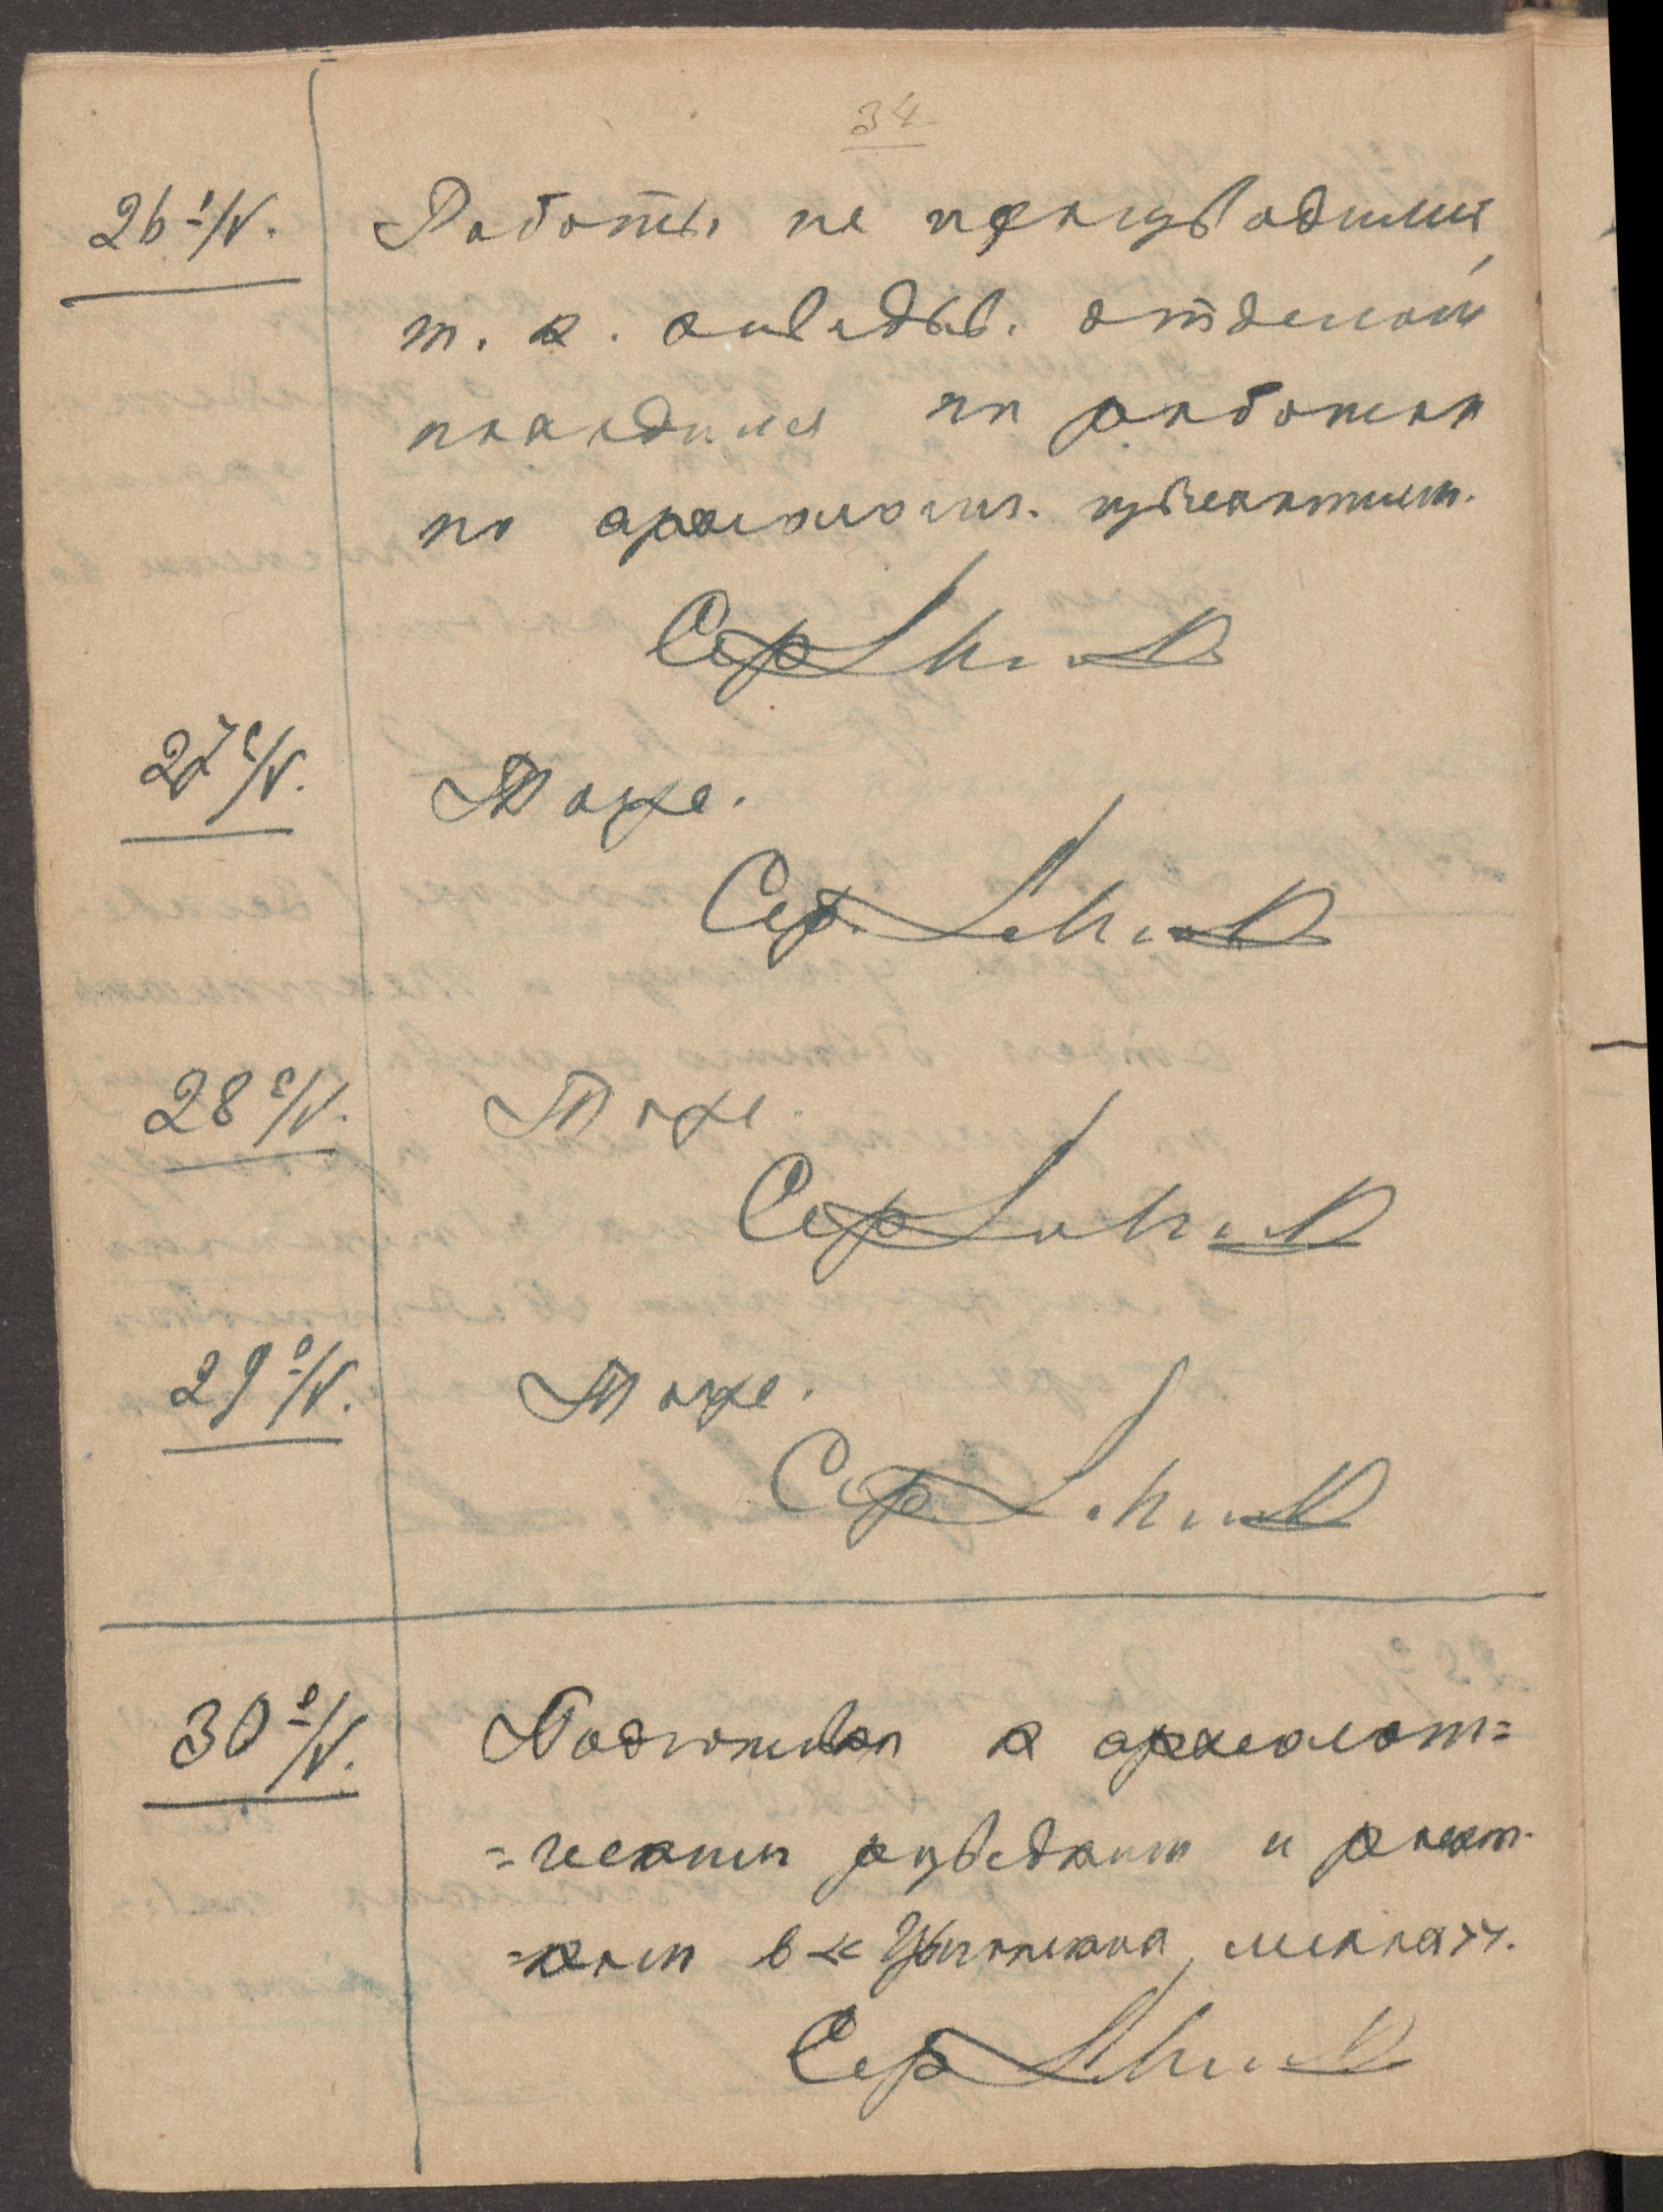 34
26 º/V. Работы не производились,
т. к. заведыв. отделом
находился на работах
по археологич.
Сер
27 º/V. Тоже.
Сер
28 º/V. Тоже.
Сер
29 º/V. Тоже.
Сер
30 º/V. Подготовка к археолог=
=ческим разведкам и раскоп=
=кам в «
Сер